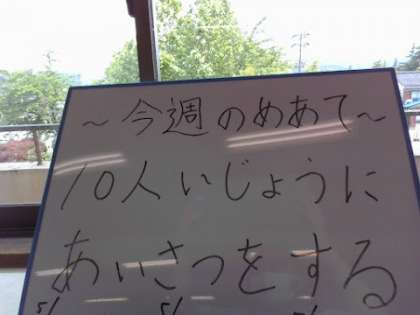 ～今週のめあて～
10人いじょうに
あいさつをする
5/ 5/